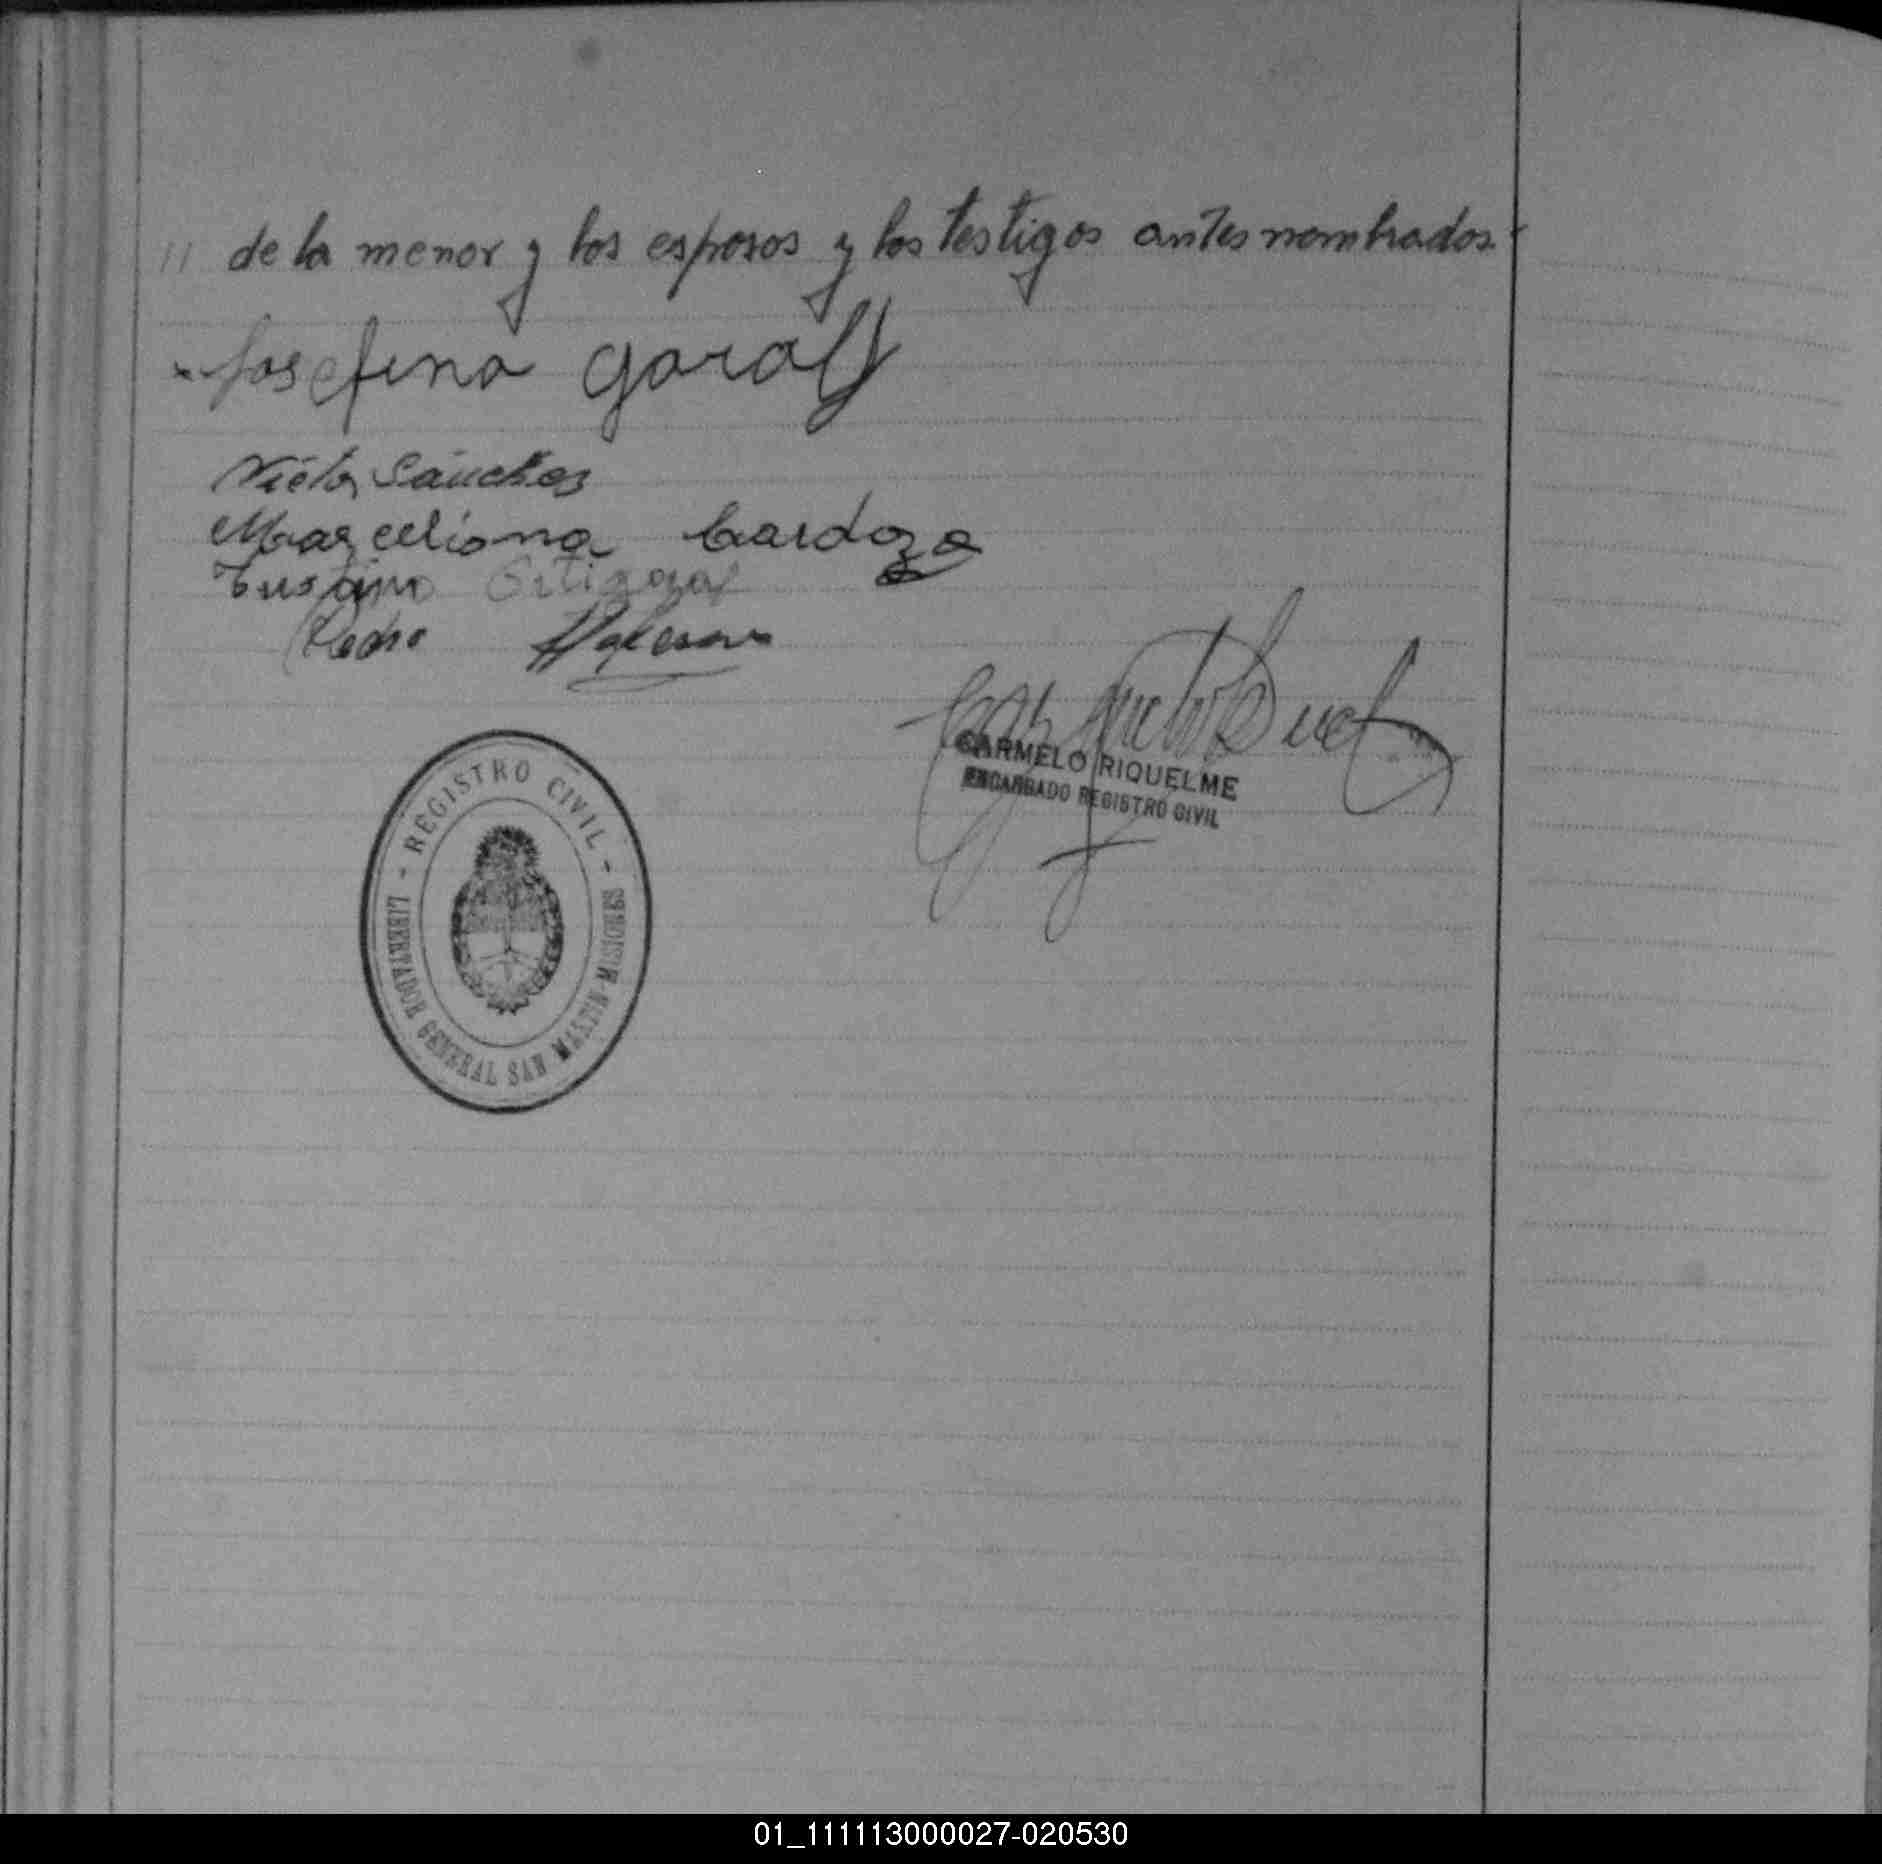 11 de la menor y los esposos y los testigos antes nombrados.
Josefina
Victor Sánchez
Marceliana Cardozo
Ortigoza
Pedro
CARMELO RIQUELME
ENCARGADO REGISTRO CIVIL
- REGISTRO CIVIL -
LIBERTADOR GENERAL SAN MARTIN-MISIONES
01_111113000027-020530